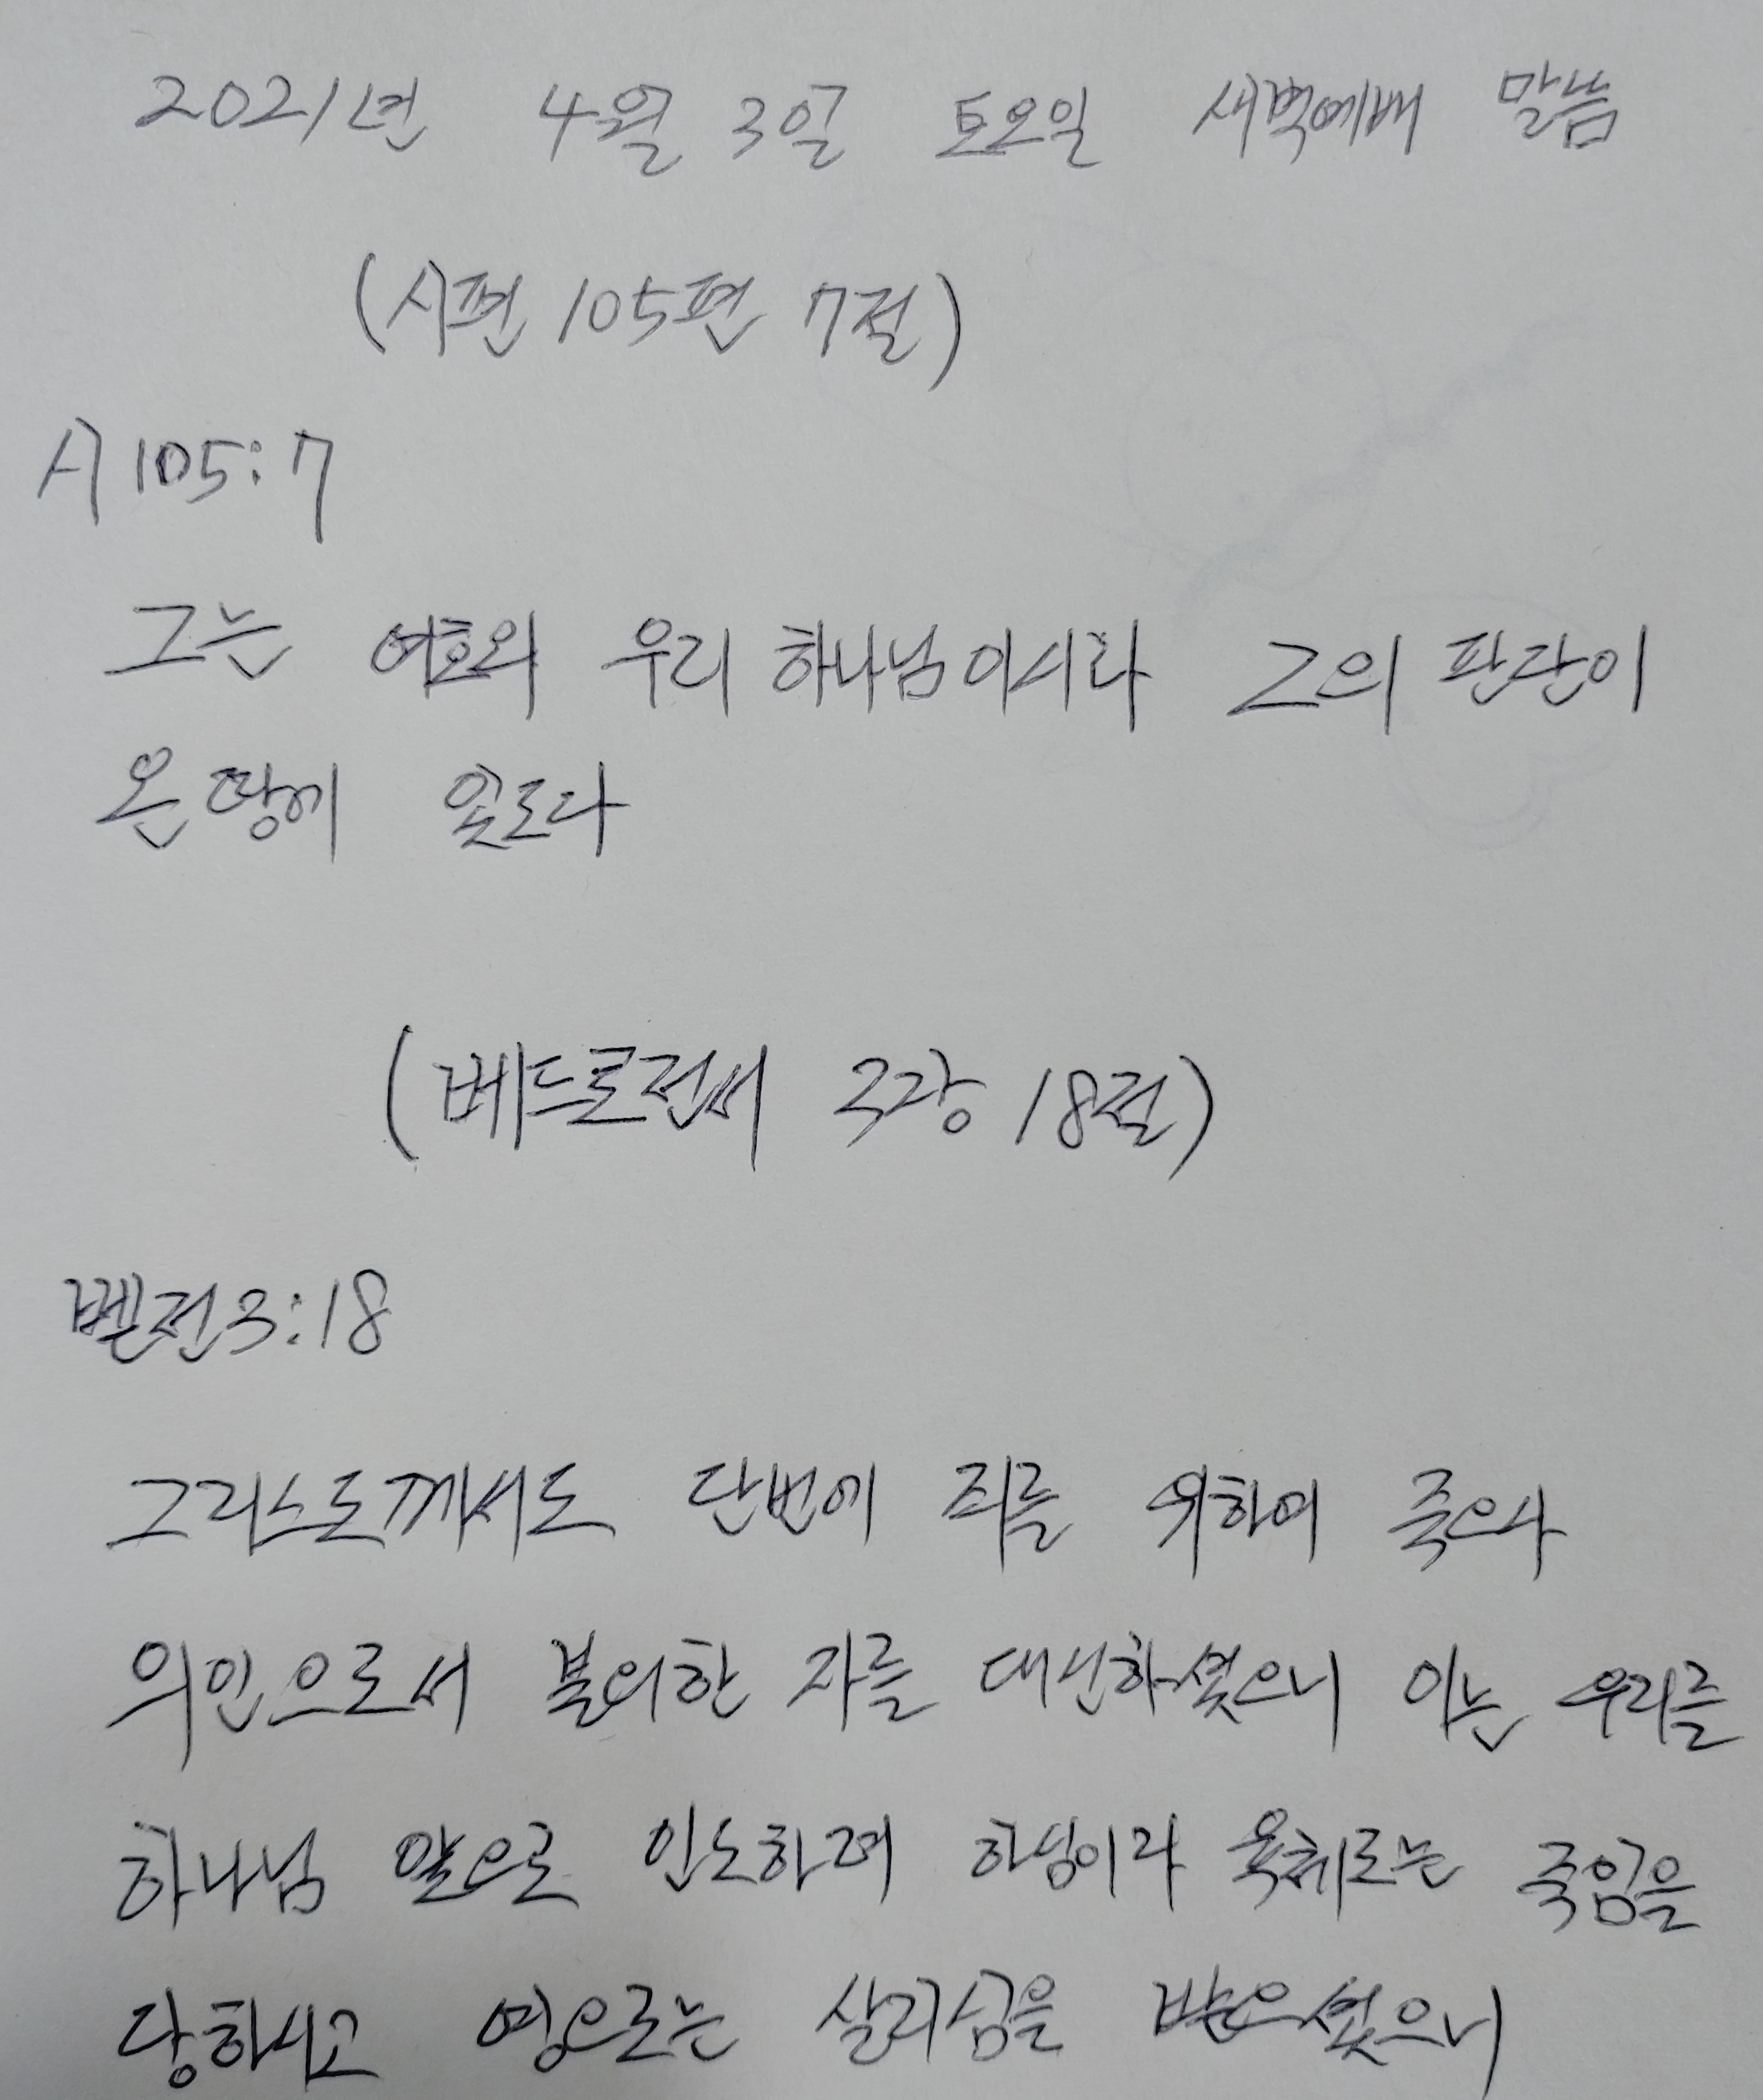 2021년 4월 3일 토요일 새벽예배 말씀
(시편 105편 7절)
시 105:7
그는 여호와 우리 하나님이시라 그의 판단이
온 땅에 있도다
(베드로전서 3장 18절)
벧전3:18
그리스도께서도 단번에 죄를 위하여 죽으사
의인으로서 불의한 자를 대신하셨으니 이는 우리를
하나님 앞으로 인도하려 하심이라 육체로는 죽임을
당하시고 영으로는 살리심을 받으셨으니